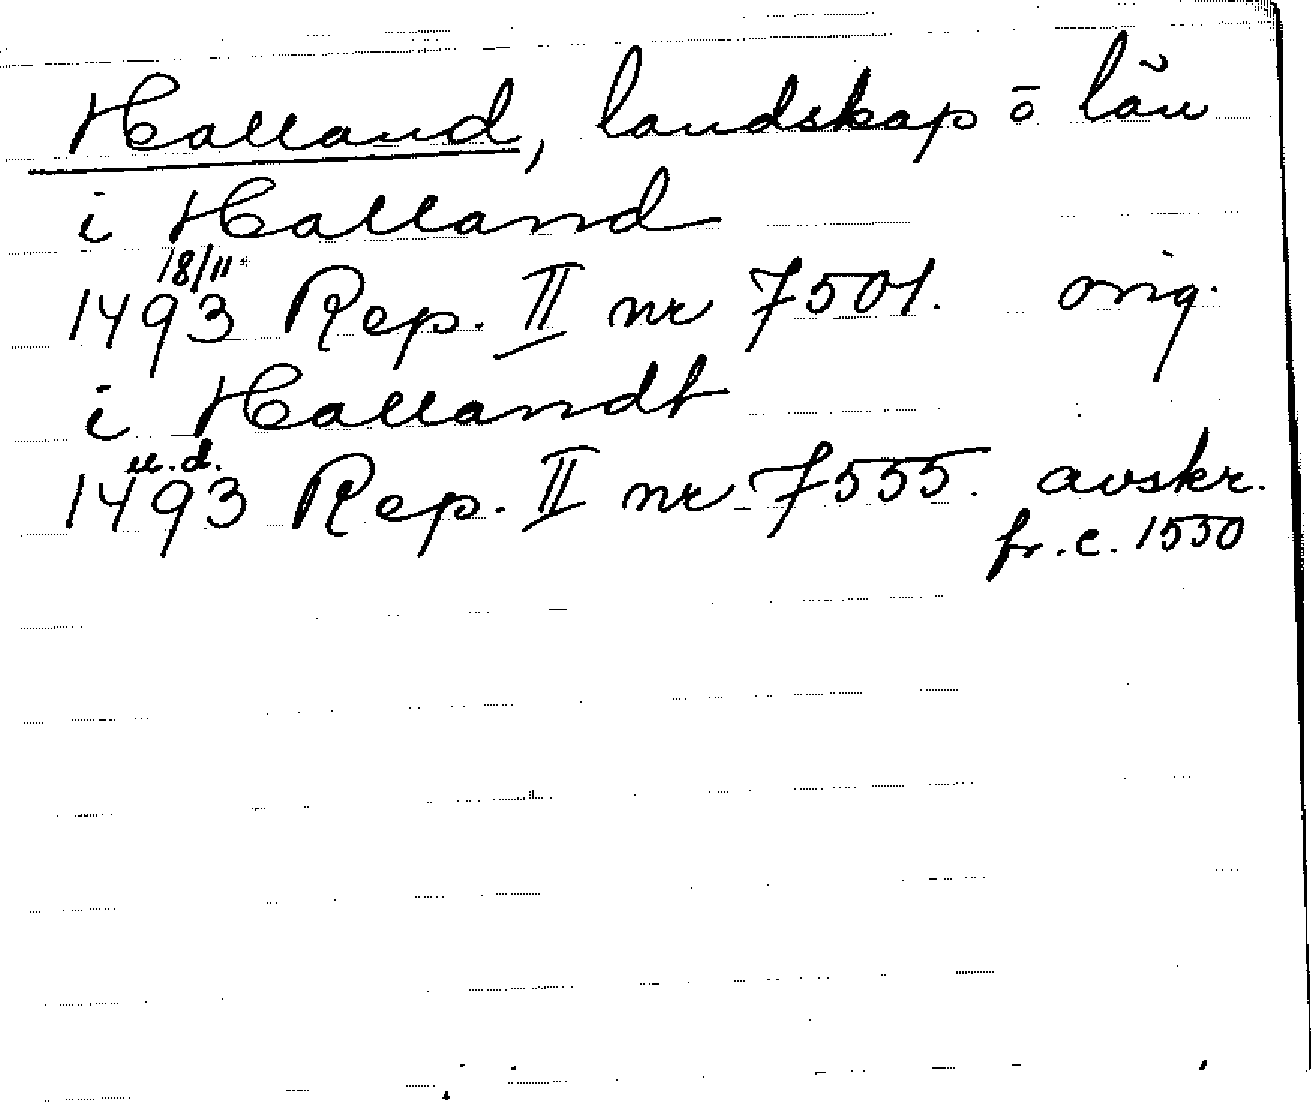 Halland, landskap o län
i Halland
18/11
1493 Rep. II nr 7501. orig.
i Hallandt
u.d.
1493 Rep. II nr 7555. avskr.
fr.c. 1550